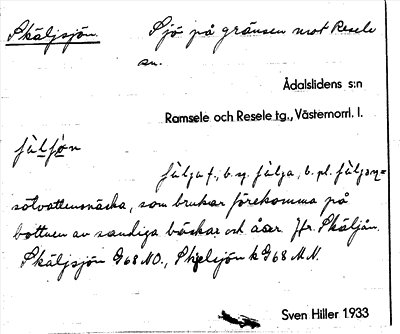 Skäljsjön. Sjö på gränsen mot Resele
sn.
Ådalslidens s:n
Ramsele och Resele tg., Västernorrl. l.
jäljön
jälja f., b. sg. jälja, b. pl.
sötvattenssnäcka, som brukar förekomma på
bottnen av sandiga bäckar och åar. Jfr. Skäljån.
Skäljsjön G68 NO., Skjelsjön k G68
Sven Hiller 1933